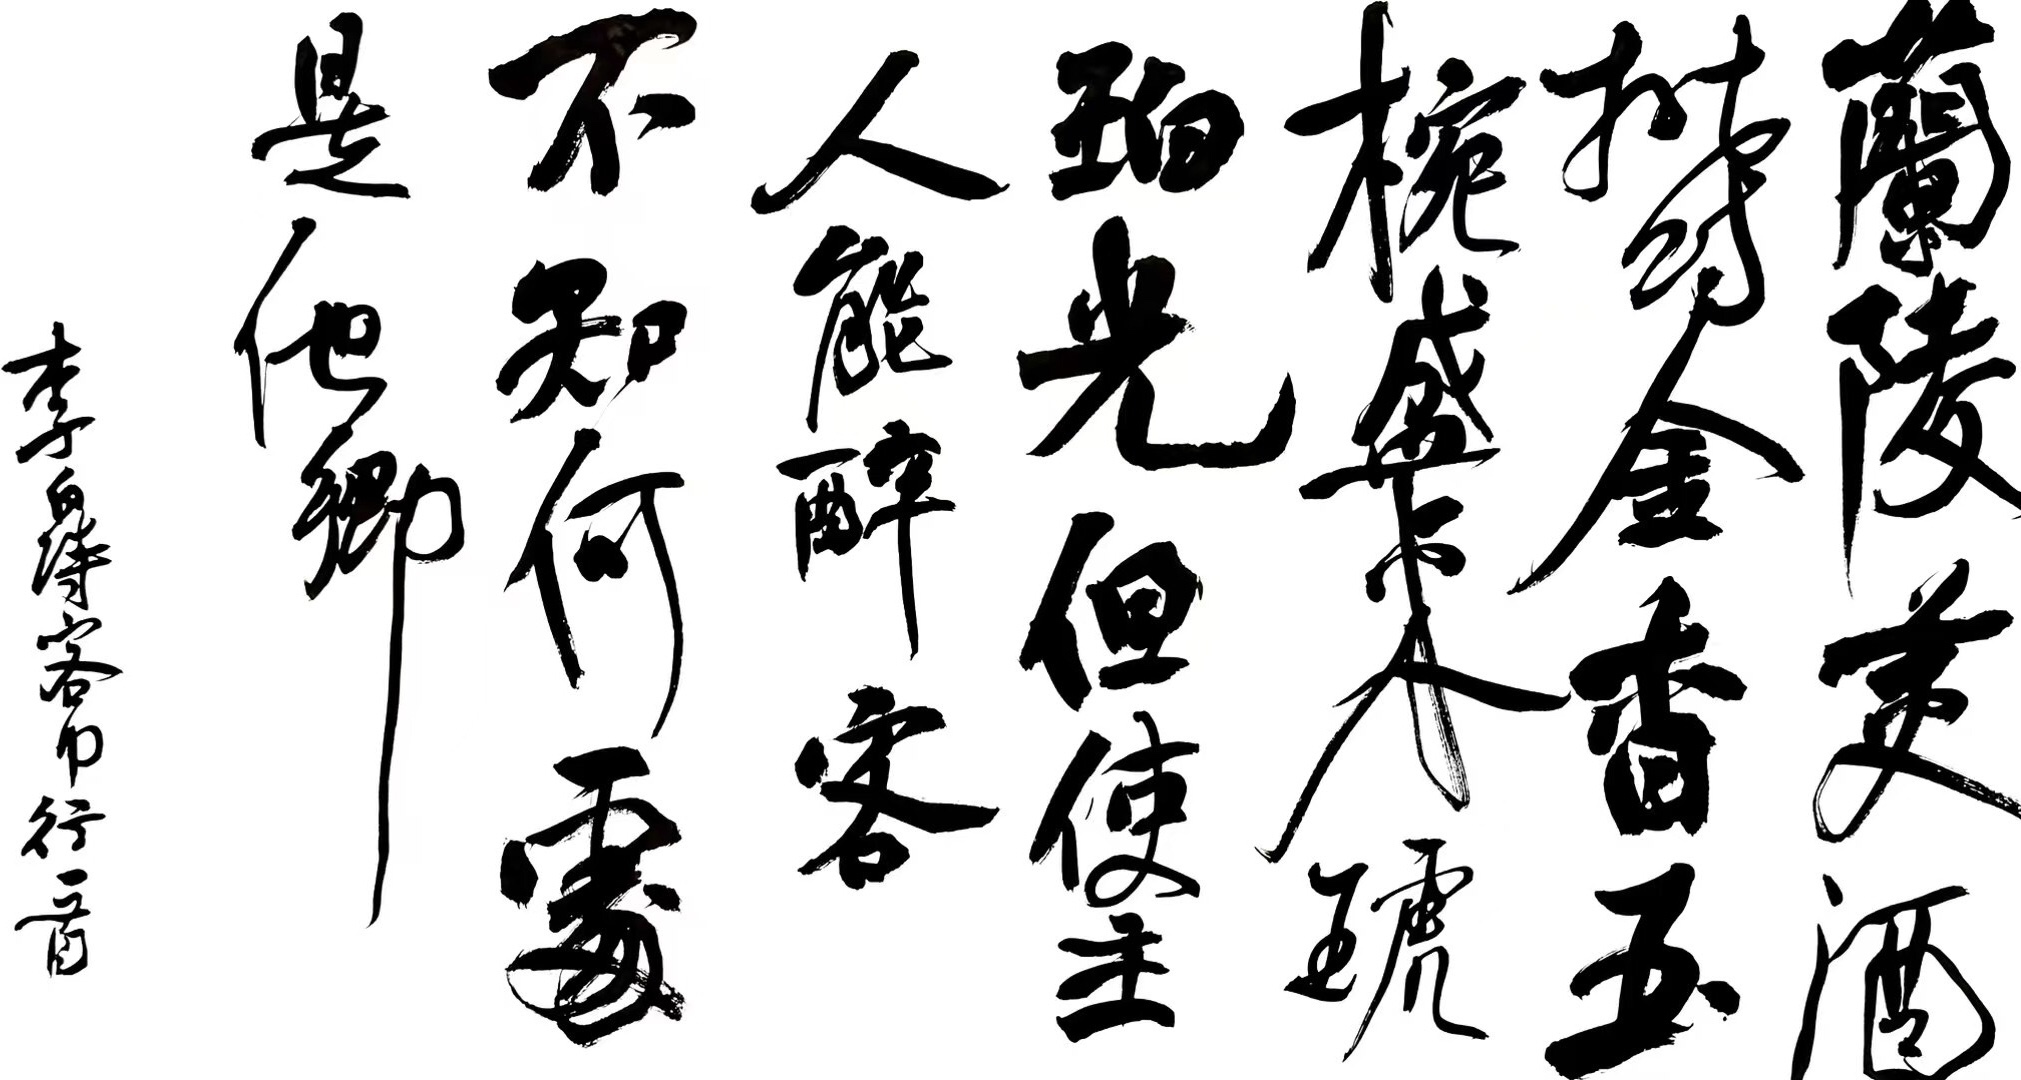 蘭陵美酒
鬱金香玉
椀盛來琥
珀光但使主
人能醉客
不知何處
是他鄉
李白詩客中行一首